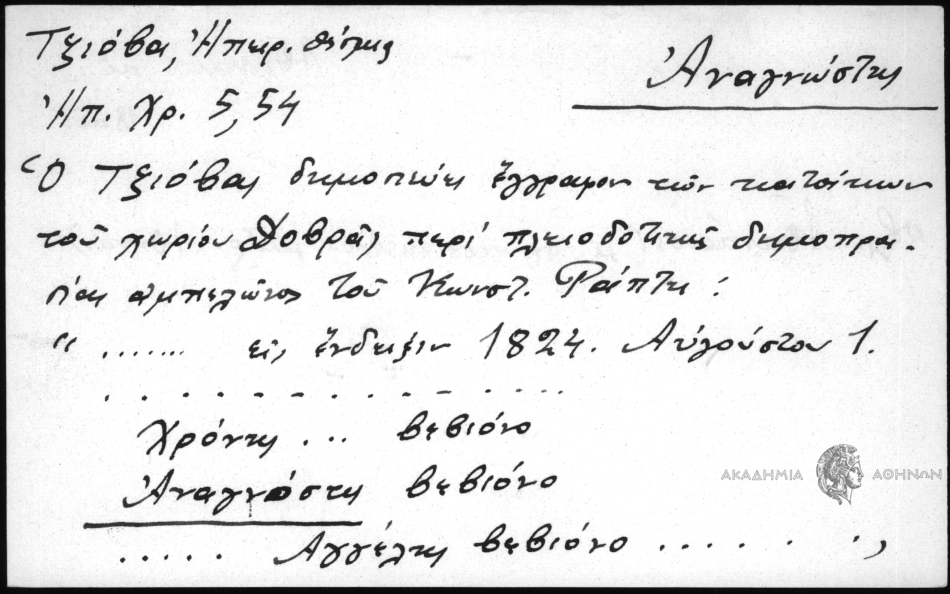 Τζιόβα, Ἠπειρ. θέμις
Ἀναγνώστης
Ἠπ. Χρ. 5, 54
Ὁ Τζιόβας δημοσιεύει ἔγγραφον τῶν κατοίκων
τοῦ χωρίου Δοβρᾶς περὶ πλειοδοτικῆς δημοπρα-
σίας ἀμπελῶνος τοῦ Κωνστ. Ράπτη:
"....... εἰς ἔνδειξιν 1824. Αὐγούστου 1.
. . . . . . . . . . . . . . . .
Χρόντης ... βεβιόνο
Ἀναγνόστης βεβιόνο
..... Αγγέλης βεβιόνο ...... ..,
ΑΚΑΔΗΜΙΑ ΑΘΗΝΩΝ